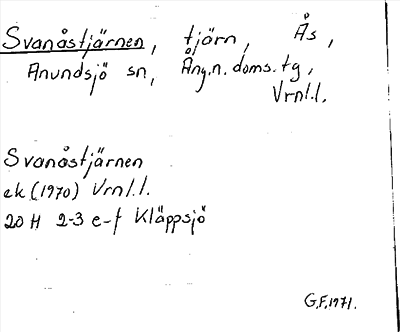 Svanåstjärnen, tjärn, Ås,
Anundsjö sn, Ång.n.doms.tg,
Vrnl.l.
Svanåstjärnen
ek (1970) Vrnl.l.
20 H 2-3 e-f Kläppsjö
G.F.1971.